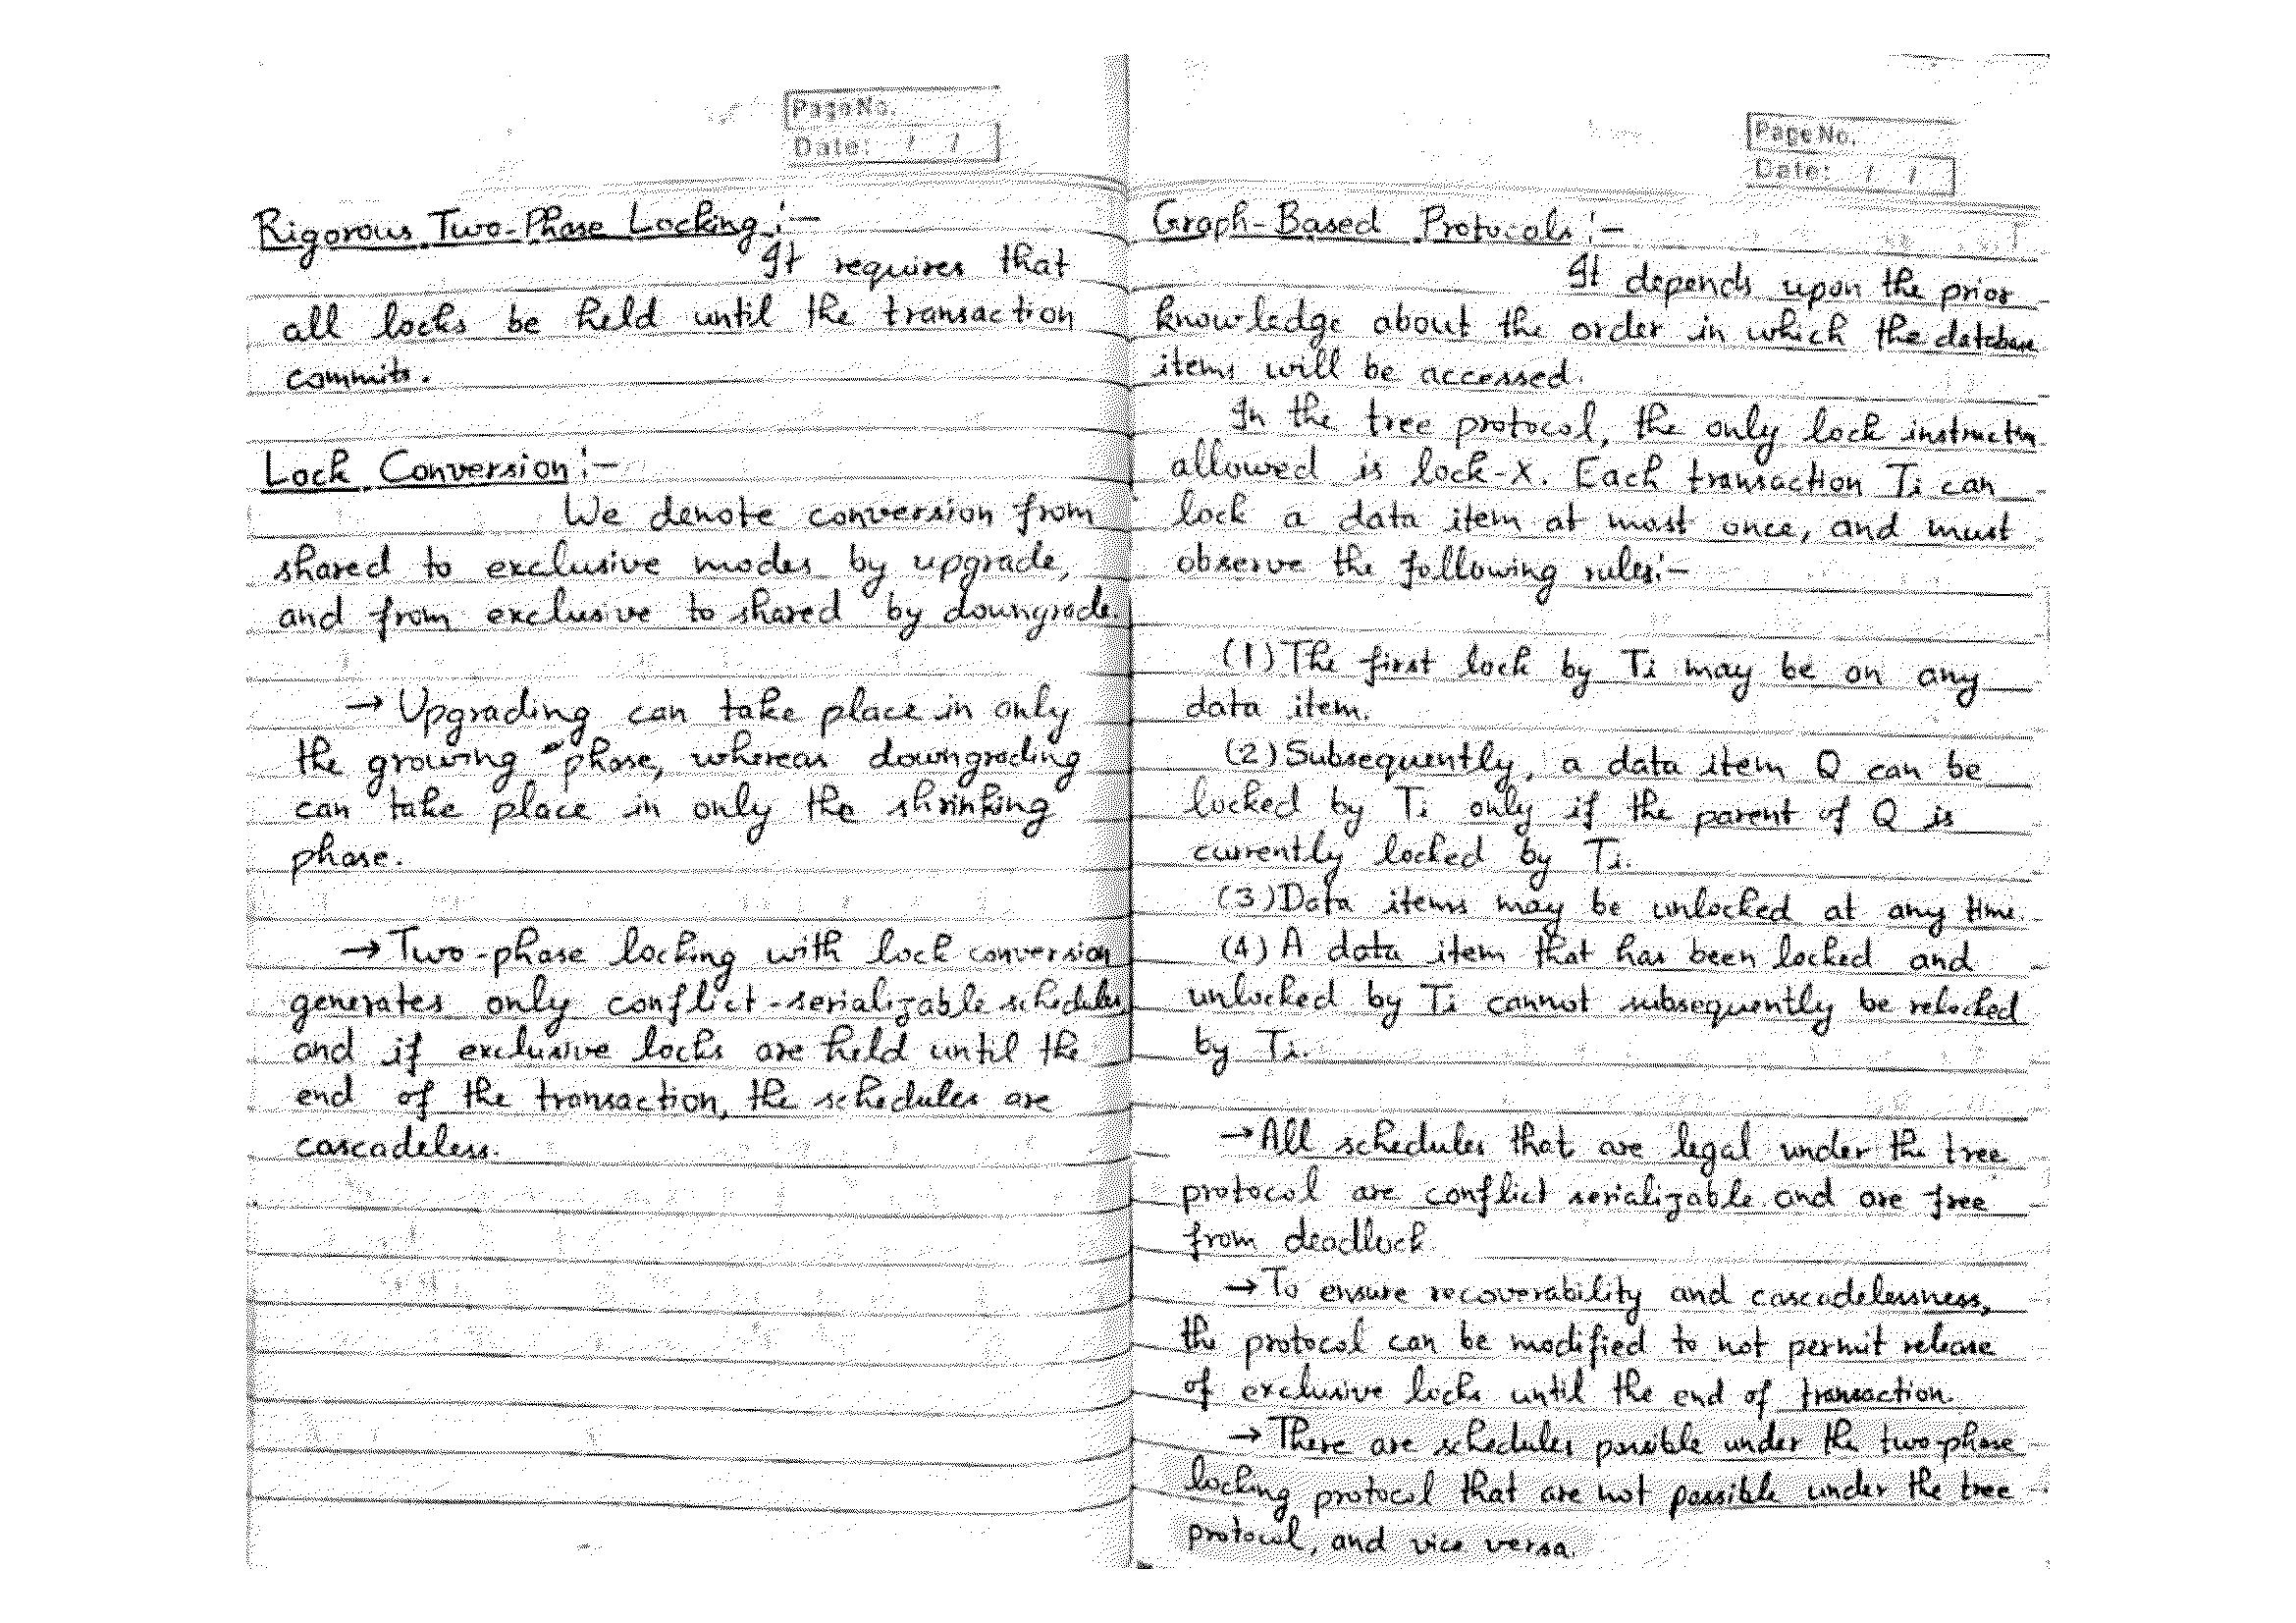 PageNo.
Date: / /
Rigorous Two-Phase Locking:-
It requires that
all locks be held until the transaction
commits.
Lock Conversion:-
We denote conversion from
shared to exclusive modes by upgrade,
and from exclusive to shared by downgrade.
→ Upgrading can take place in only
the growing phase, whereas downgrading
can take place in only the shrinking
phase.
→ Two-phase locking with lock conversion
generates only conflict-serializable schedules
and if exclusive locks are held until the
end of the transaction, the schedules are
cascadeless.
Page No.
Date: / /
Graph-Based Protocols:-
It depends upon the prior
knowledge about the order in which the database
items will be accessed.
In the tree protocol, the only lock instructn
allowed is lock-X. Each transaction Ti can
lock a data item at most once, and must
observe the following rules:-
(1) The first lock by Ti may be on any
data item.
(2) Subsequently, a data item Q can be
locked by Ti only if the parent of Q is
currently locked by Ti.
(3) Data items may be unlocked at any time.
(4) A data item that has been locked and
unlocked by Ti cannot subsequently be relocked
by Ti.
→ All schedules that are legal under the tree
protocol are conflict serializable and are free
from deadlock.
→ To ensure recoverability and cascadelessness,
the protocol can be modified to not permit release
of exclusive locks until the end of transaction.
→ There are schedules possible under the two-phase
locking protocol that are not possible under the tree
protocol, and vice versa.